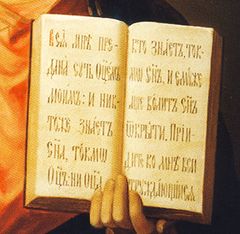 Вся мнѣ пре-
дана суть Оц҃емъ
моимъ: и ник-
тоже знаетъ
Сн҃а, токмѡ
Оц҃ъ: ни Оц҃а
кто знаетъ, ток-
мѡ Сн҃ъ, и емꙋже
аще волитъ Сн҃ъ
ѿкрыти. Прїи-
дите ко мнѣ вси
трꙋждающїися